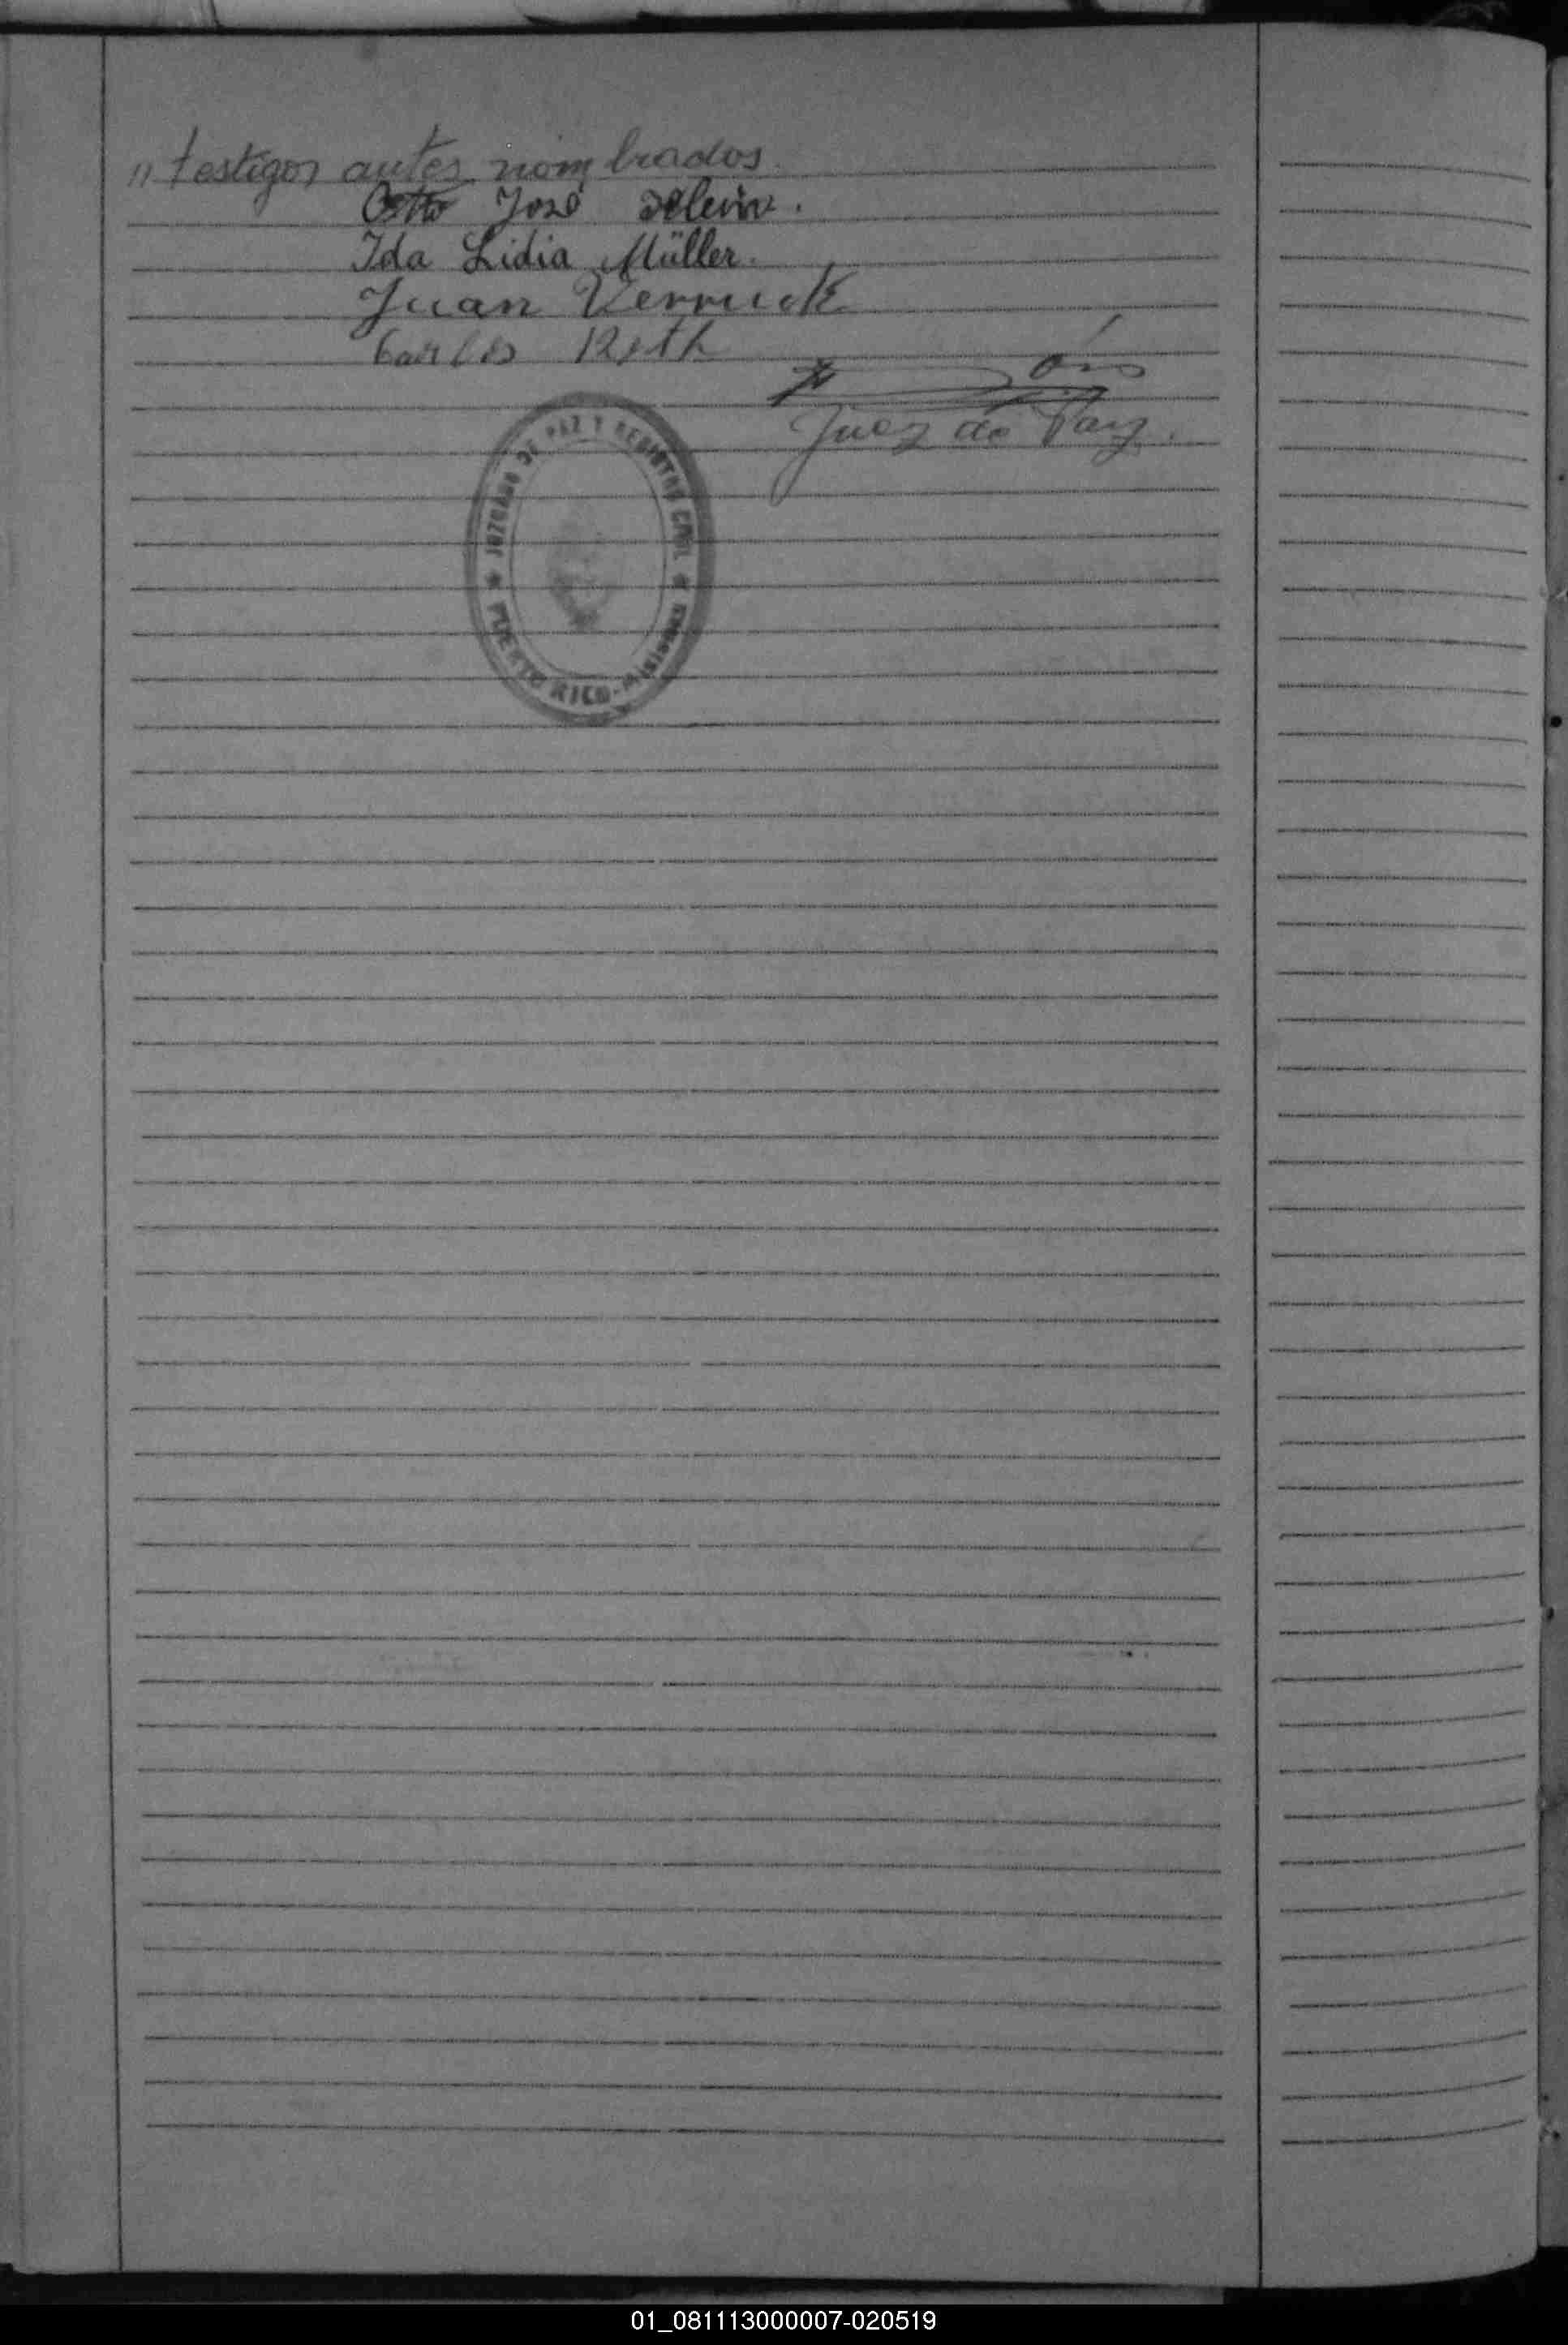 " testigos antes nombrados.
Otto José
Ida Lidia Müller.
Juan Verruck
Carlos Roth
Juez de Paz.
★ JUZGADO DE PAZ Y REGISTRO CIVIL ★
PUERTO RICO - Misiones
01_081113000007-020519